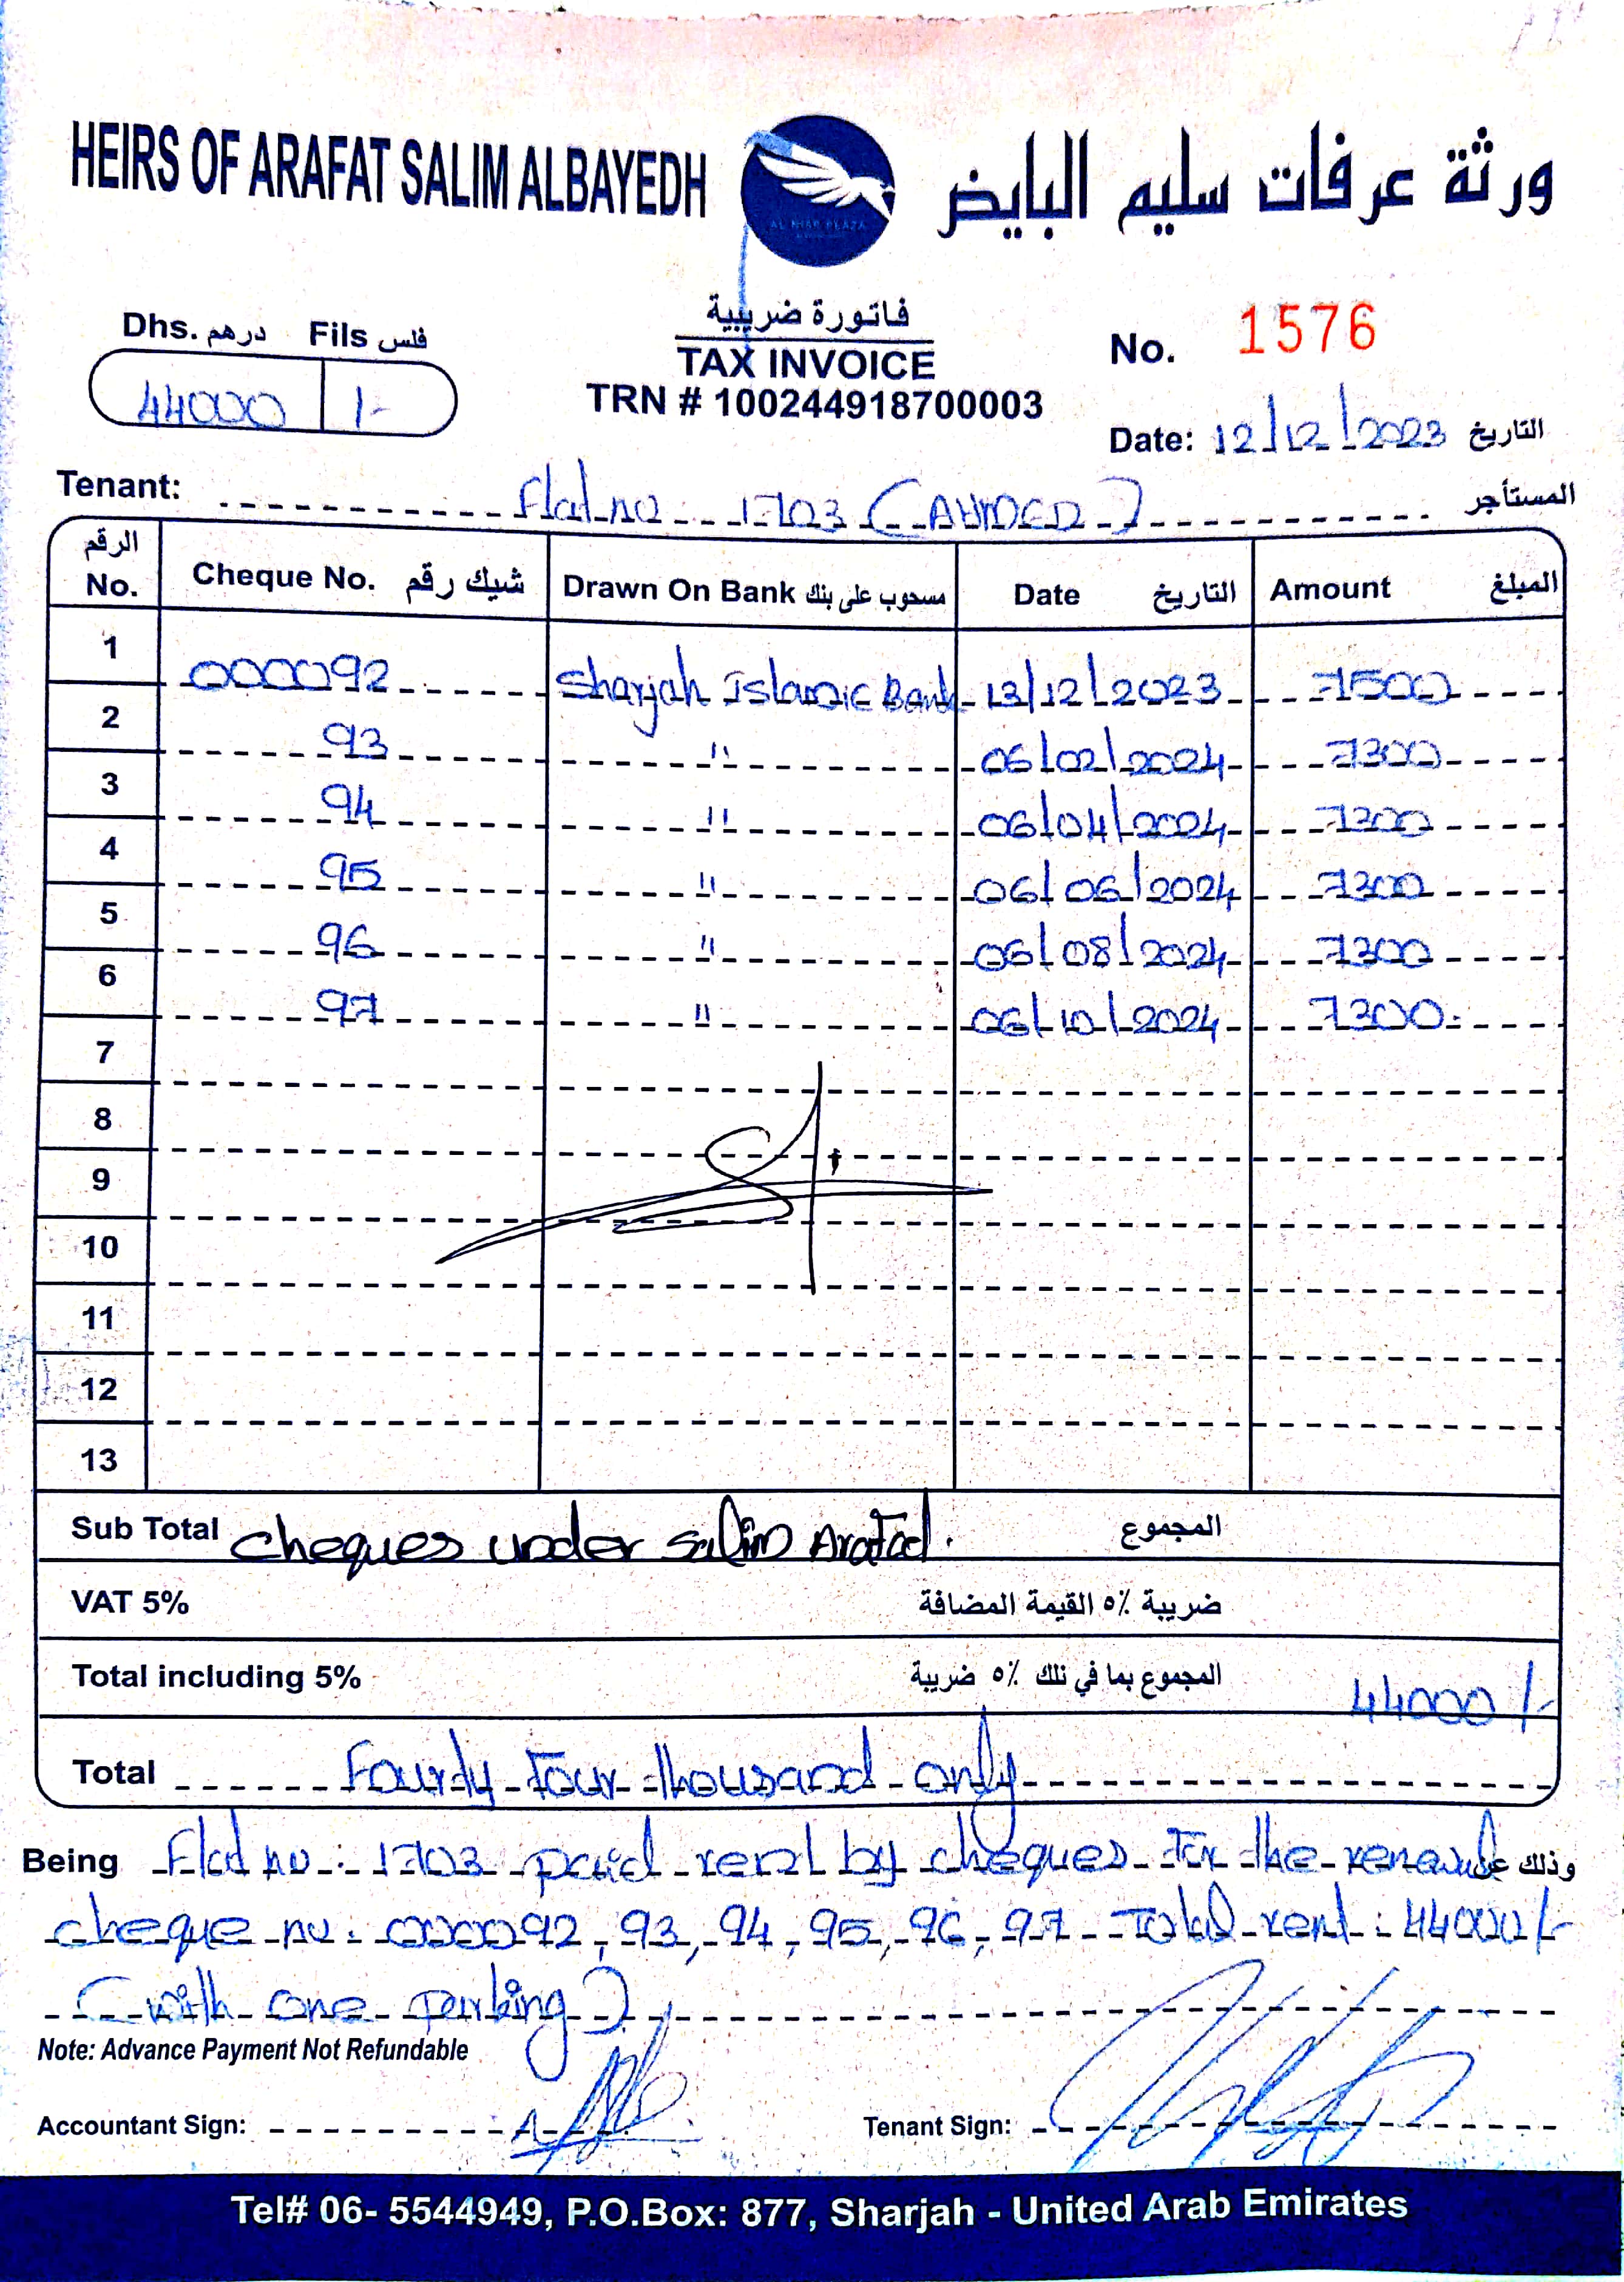 HEIRS OF ARAFAT SALIM ALBAYEDH
ورثة عرفات سليم البايض
AL NHAR PLAZA
Dhs. درهم Fils فلس
44000 /-
فاتورة ضريبية
TAX INVOICE
TRN # 100244918700003
No. 1576
Date: 12/12/2023 التاريخ
Tenant: Flat no 1703 (AHMED) المستأجر
الرقم No. Cheque No. شيك رقم Drawn On Bank مسحوب على بنك Date التاريخ Amount المبلغ
1 000092 Sharjah Islamic Bank 13/12/2023 7500
2 93 " 06/02/2024 7300
3 94 " 06/04/2024 7300
4 95 " 06/06/2024 7300
5 96 " 06/08/2024 7300
6 97 " 06/10/2024 7300
7
8
9
10
11
12
13
Sub Total cheques under Salim Arafat. المجموع
VAT 5% ضريبة ٥٪ القيمة المضافة
Total including 5% المجموع بما في ذلك ٥٪ ضريبة 44000/-
Total Fourty Four thousand only
Being Flat no: 1703 paid rent by cheques for the renewal وذلك عن
cheque no: 000092, 93, 94, 95, 96, 97 Total rent: 44000/-
(with one parking)
Note: Advance Payment Not Refundable
Accountant Sign: Tenant Sign:
Tel# 06- 5544949, P.O.Box: 877, Sharjah - United Arab Emirates